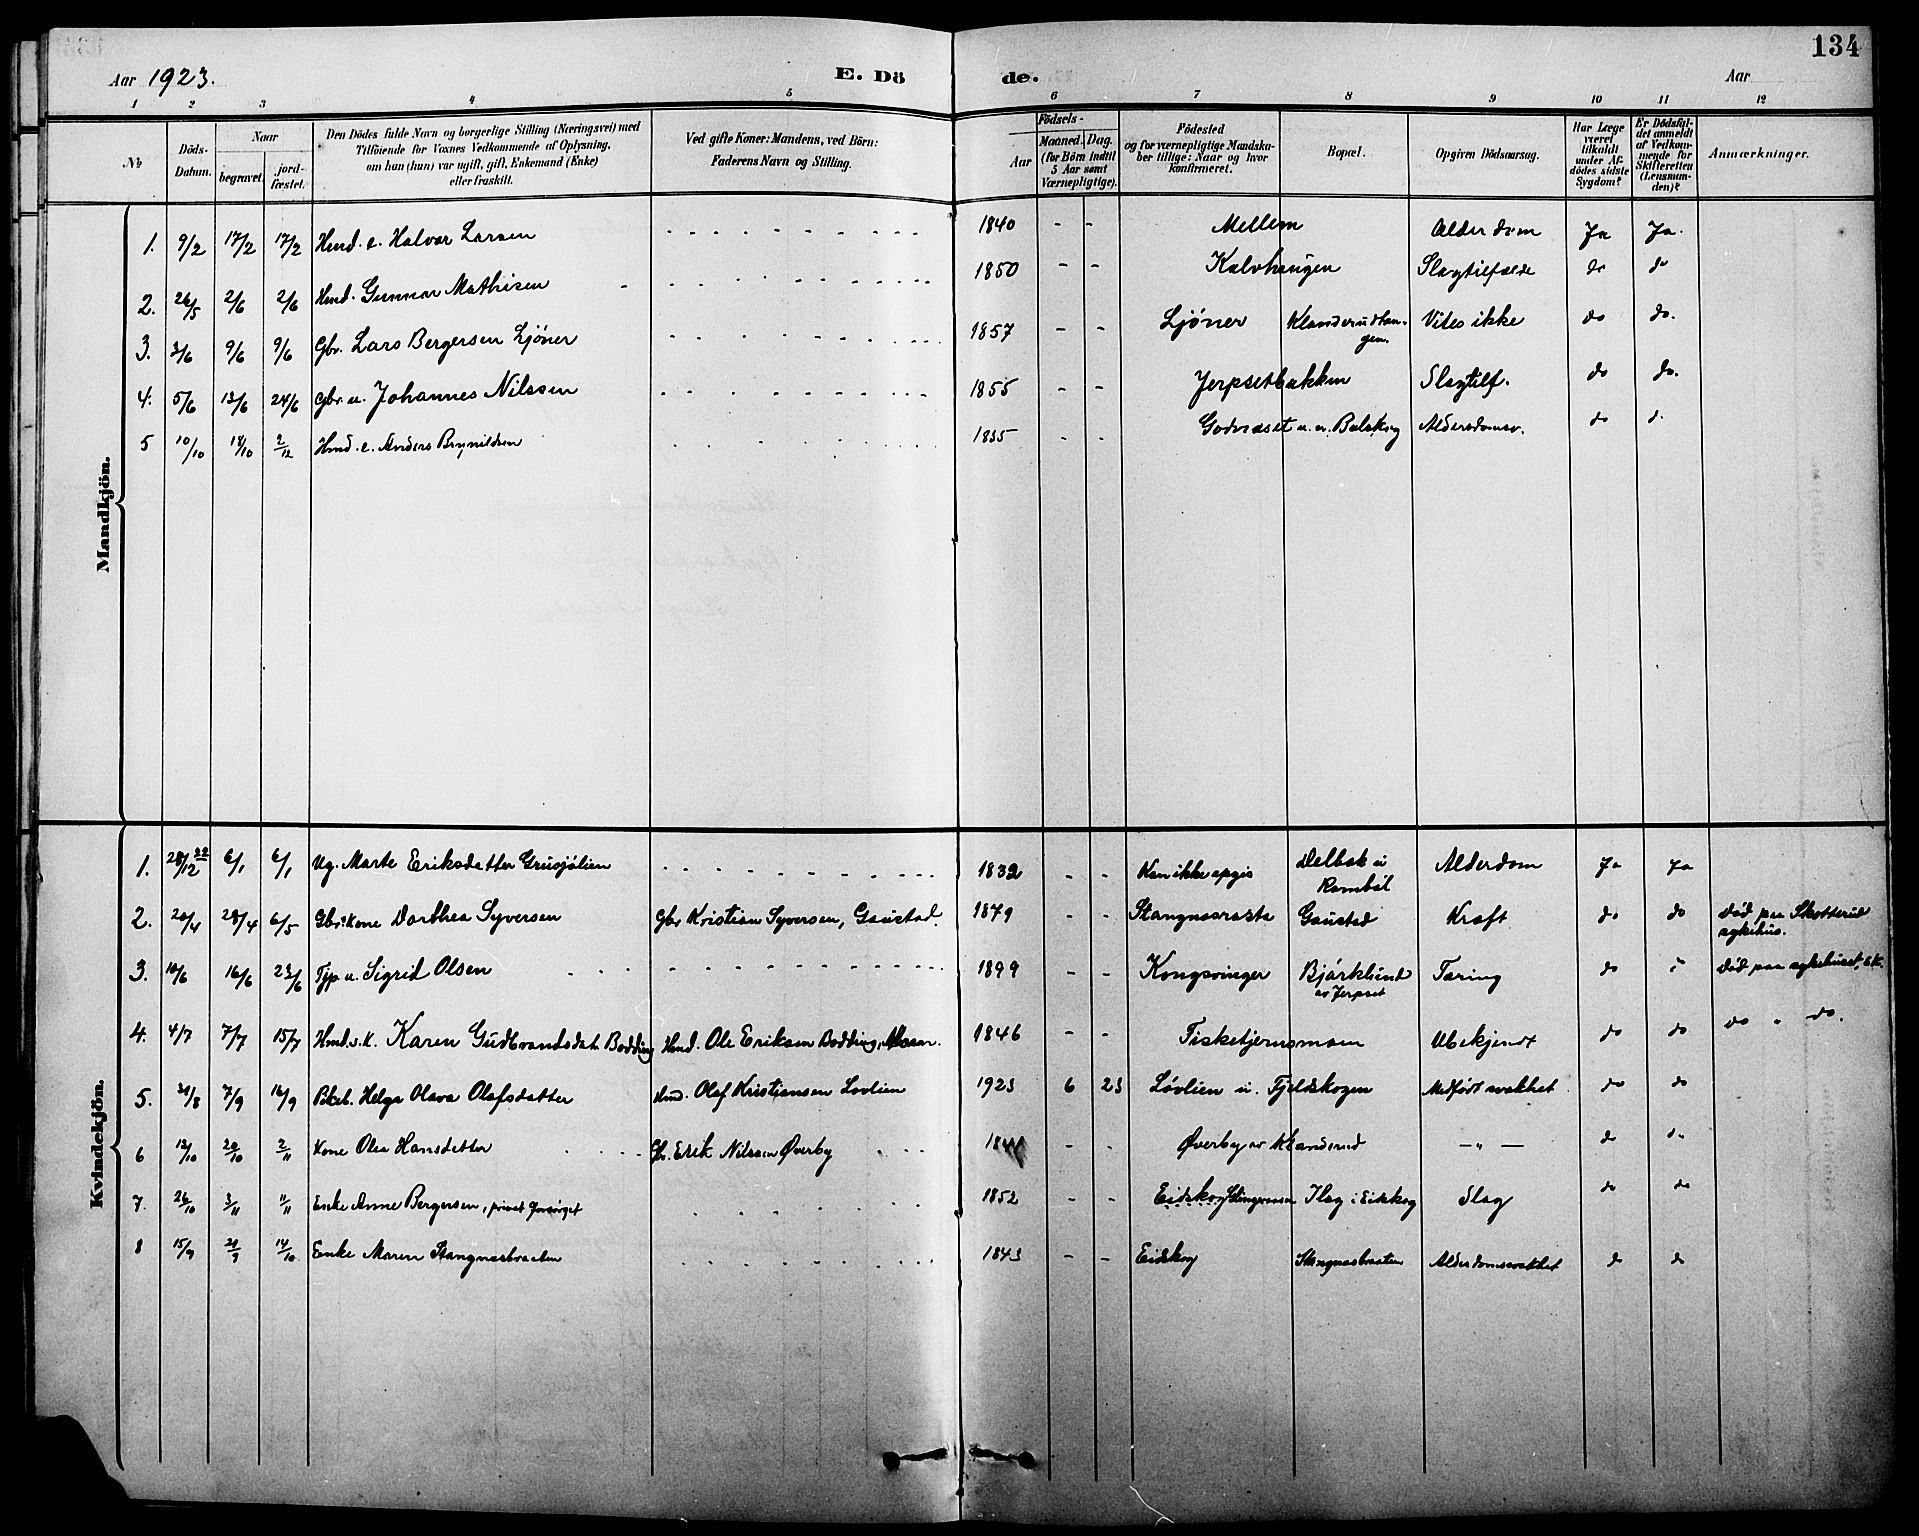 134
Aar 1923.
E. Dö de.
Aar
1 2 3 4 5 6 7 8 9 10 11 12
No
Döds-Datum.
Naar
begravet.
jord-fæstet.
Den Dödes fulde Navn og borgerlige Stilling (Næringsvei) med
Tilföiende for Voxnes Vedkommende af Oplysning,
om han (hun) var ugift, gift, Enkemand (Enke)
eller fraskilt.
Ved gifte Koner: Mandens, ved Börn:
Faderens Navn og Stilling.
Födsels-
Aar
Maaned. Dag.
(for Börn indtil
5 Aar samt
Værnepligtige).
Födested
og for værnepligtige Mandska-
ber tillige: Naar og hvor
konfirmeret.
Bopæl.
Opgiven Dödsaarsag.
Har Læge
været
tilkaldt
under Af-
dödes sidste
Sygdom?
Er Dödsfal-
det anmeldt
af Vedkom-
mende for
Skifteretten
(Lensman-
den)?
Anmærkninger.
Mandkjön.
1. 9/2 17/2 17/2 Hmd. e. Halvor Larsen 1840 - - Mellem Alderdom Ja Ja.
2. 26/5 2/6 2/6 Hmd. Gunnar Mathisen 1850 - - Kalvhaugen Slagtilfælde do do
3. 3/6 9/6 9/6 Gbr. Lars Bergersen Ljöner 1857 - - Ljöner Klanderudhau-
gen. Vites ikke do do.
4. 5/6 13/6 24/6 Gbr. u. Johannes Nilssen 1855 - - Jerpsetbakken Slagtilf. do do.
5 10/10 18/10 2/12 Hmd. e. Anders Brynildsen 1835 - - Godnæset u. Balskog Aldersdomsv. do d.
Kvindekjön.
1. 28/12 22 6/1 6/1 Ug. Marte Eriksdatter Grusjölien 1832 - - Kan ikke opgis Delbak u
Ramböl Alderdom Ja Ja
2. 20/4 28/4 6/5 Gbr. kone Dorthea Syversen Gbr Kristian Syversen, Gaustad. 1879 - - Stangnæs Gaustad Kræft do do död paa Skotterud
sykehus.
3. 10/6 16/6 23/6 Tjp u. Sigrid Olsen 1899 - - Kongsvinger Bjørklund
av Jerpset Tæring do död paa sykehuset,
4. 4/7 7/7 15/7 Hmd.s.k. Karen Gudbrandsdat. Bodding Hmd. Ole Eriksen Bodding, 1846 - - Fisketjernsmoen Ubekjendt do do do " do.
5. 31/8 7/9 16/9 Pikeb. Helga Olava Olafsdatter Hmd. Olaf Kristiansen Lovlien 1923 6 23 Løvlien u. Fjeldskogen Medfödt svakhet do do
6 13/10 20/10 2/11 Kone Olea Hansdatter Gbr. Erik Nilssen Øverby - - Øverby av Klanderud — " — do do
7. 26/10 3/11 11/11 Enke Anne Bergersen, privat forsörget 1852 - - Eidskog Ilag i Eidskog Slag do do
8 15/9 21/9 14/10 Enke Maren Stangnæsbraaten 1843 - - Eidskog Stangnæsbraaten Alderdomssvakhet do do